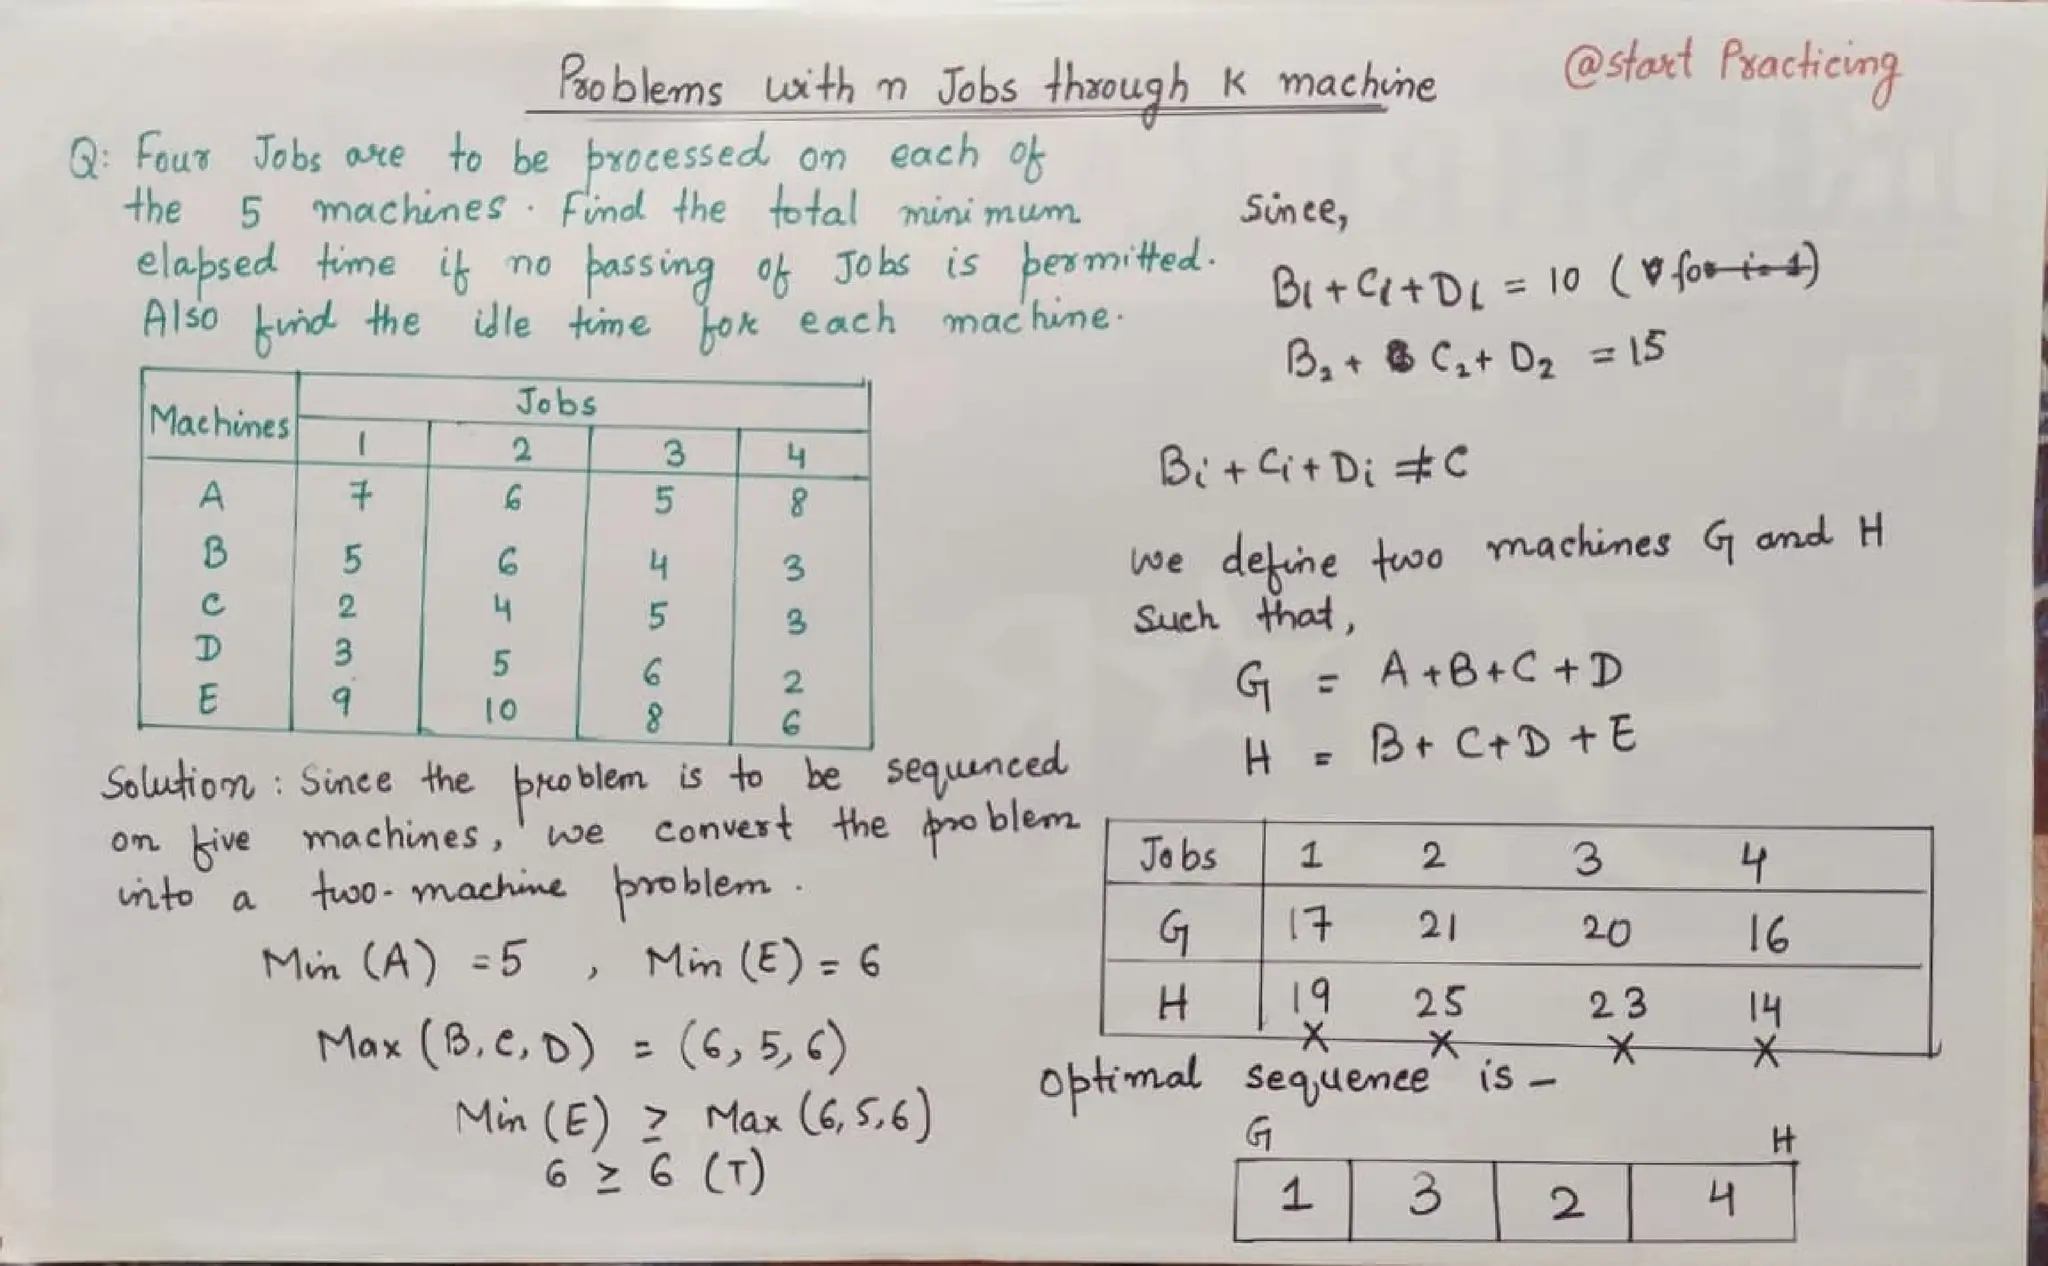 Problems with n Jobs through K machine
@start Practicing
Q: Four Jobs are to be processed on each of
the 5 machines. Find the total minimum
elapsed time if no passing of Jobs is permitted.
Also find the idle time for each machine.
Machines Jobs
1 2 3 4
A 7 6 5 8
B 5 6 4 3
C 2 4 5 3
D 3 5 6 2
E 9 10 8 6
Solution : Since the problem is to be sequenced
on five machines, we convert the problem
into a two-machine problem.
Min (A) = 5 , Min (E) = 6
Max (B, C, D) = (6, 5, 6)
Min (E) ≥ Max (6, 5, 6)
6 ≥ 6 (T)
Since,
B1 + C1 + D1 = 10 ( ∀ for i = 1)
B2 + C2 + D2 = 15
Bi + Ci + Di ≠ C
we define two machines G and H
Such that,
G = A + B + C + D
H = B + C + D + E
Jobs 1 2 3 4
G 17 21 20 16
H 19 25 23 14
× × × ×
Optimal sequence is –
G H
1 3 2 4